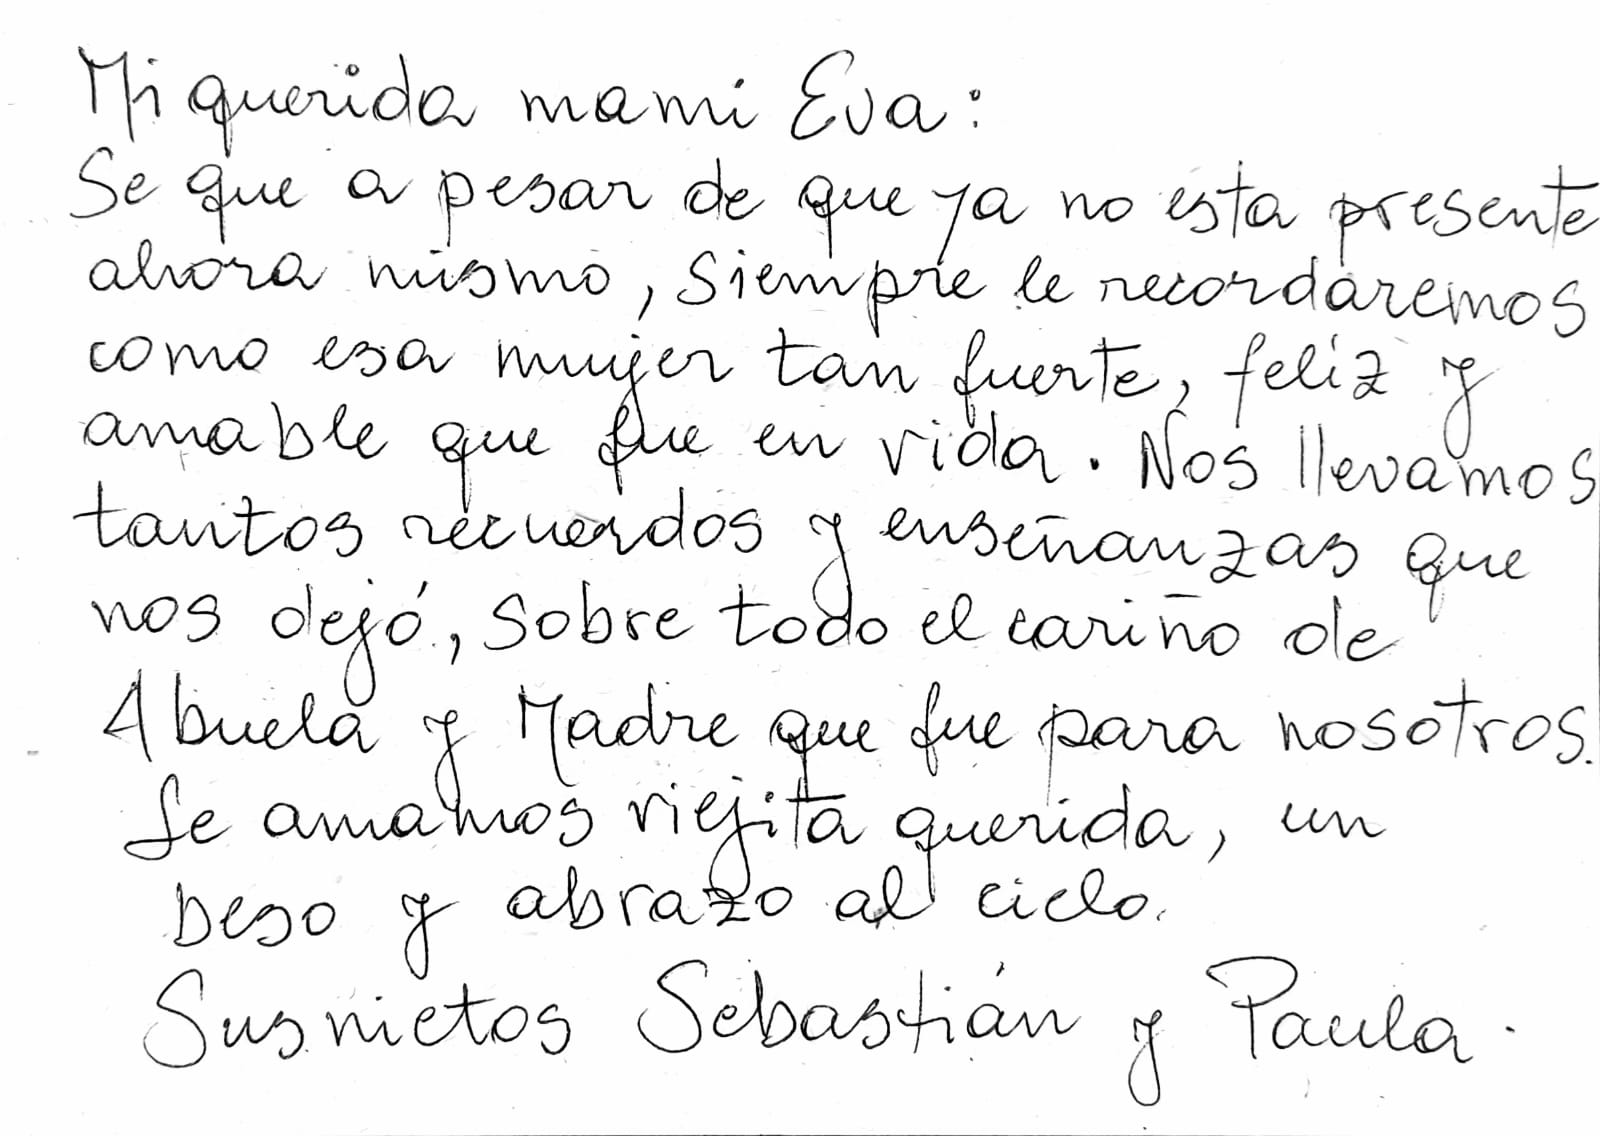 Mi querida mami Eva:
Se que a pesar de que ya no esta presente
ahora mismo, siempre le recordaremos
como esa mujer tan fuerte, feliz y
amable que fue en vida. Nos llevamos
tantos recuerdos y enseñanzas que
nos dejó, sobre todo el cariño de
Abuela y Madre que fue para nosotros.
Le amamos viejita querida, un
beso y abrazo al cielo.
Sus nietos Sebastián y Paula.